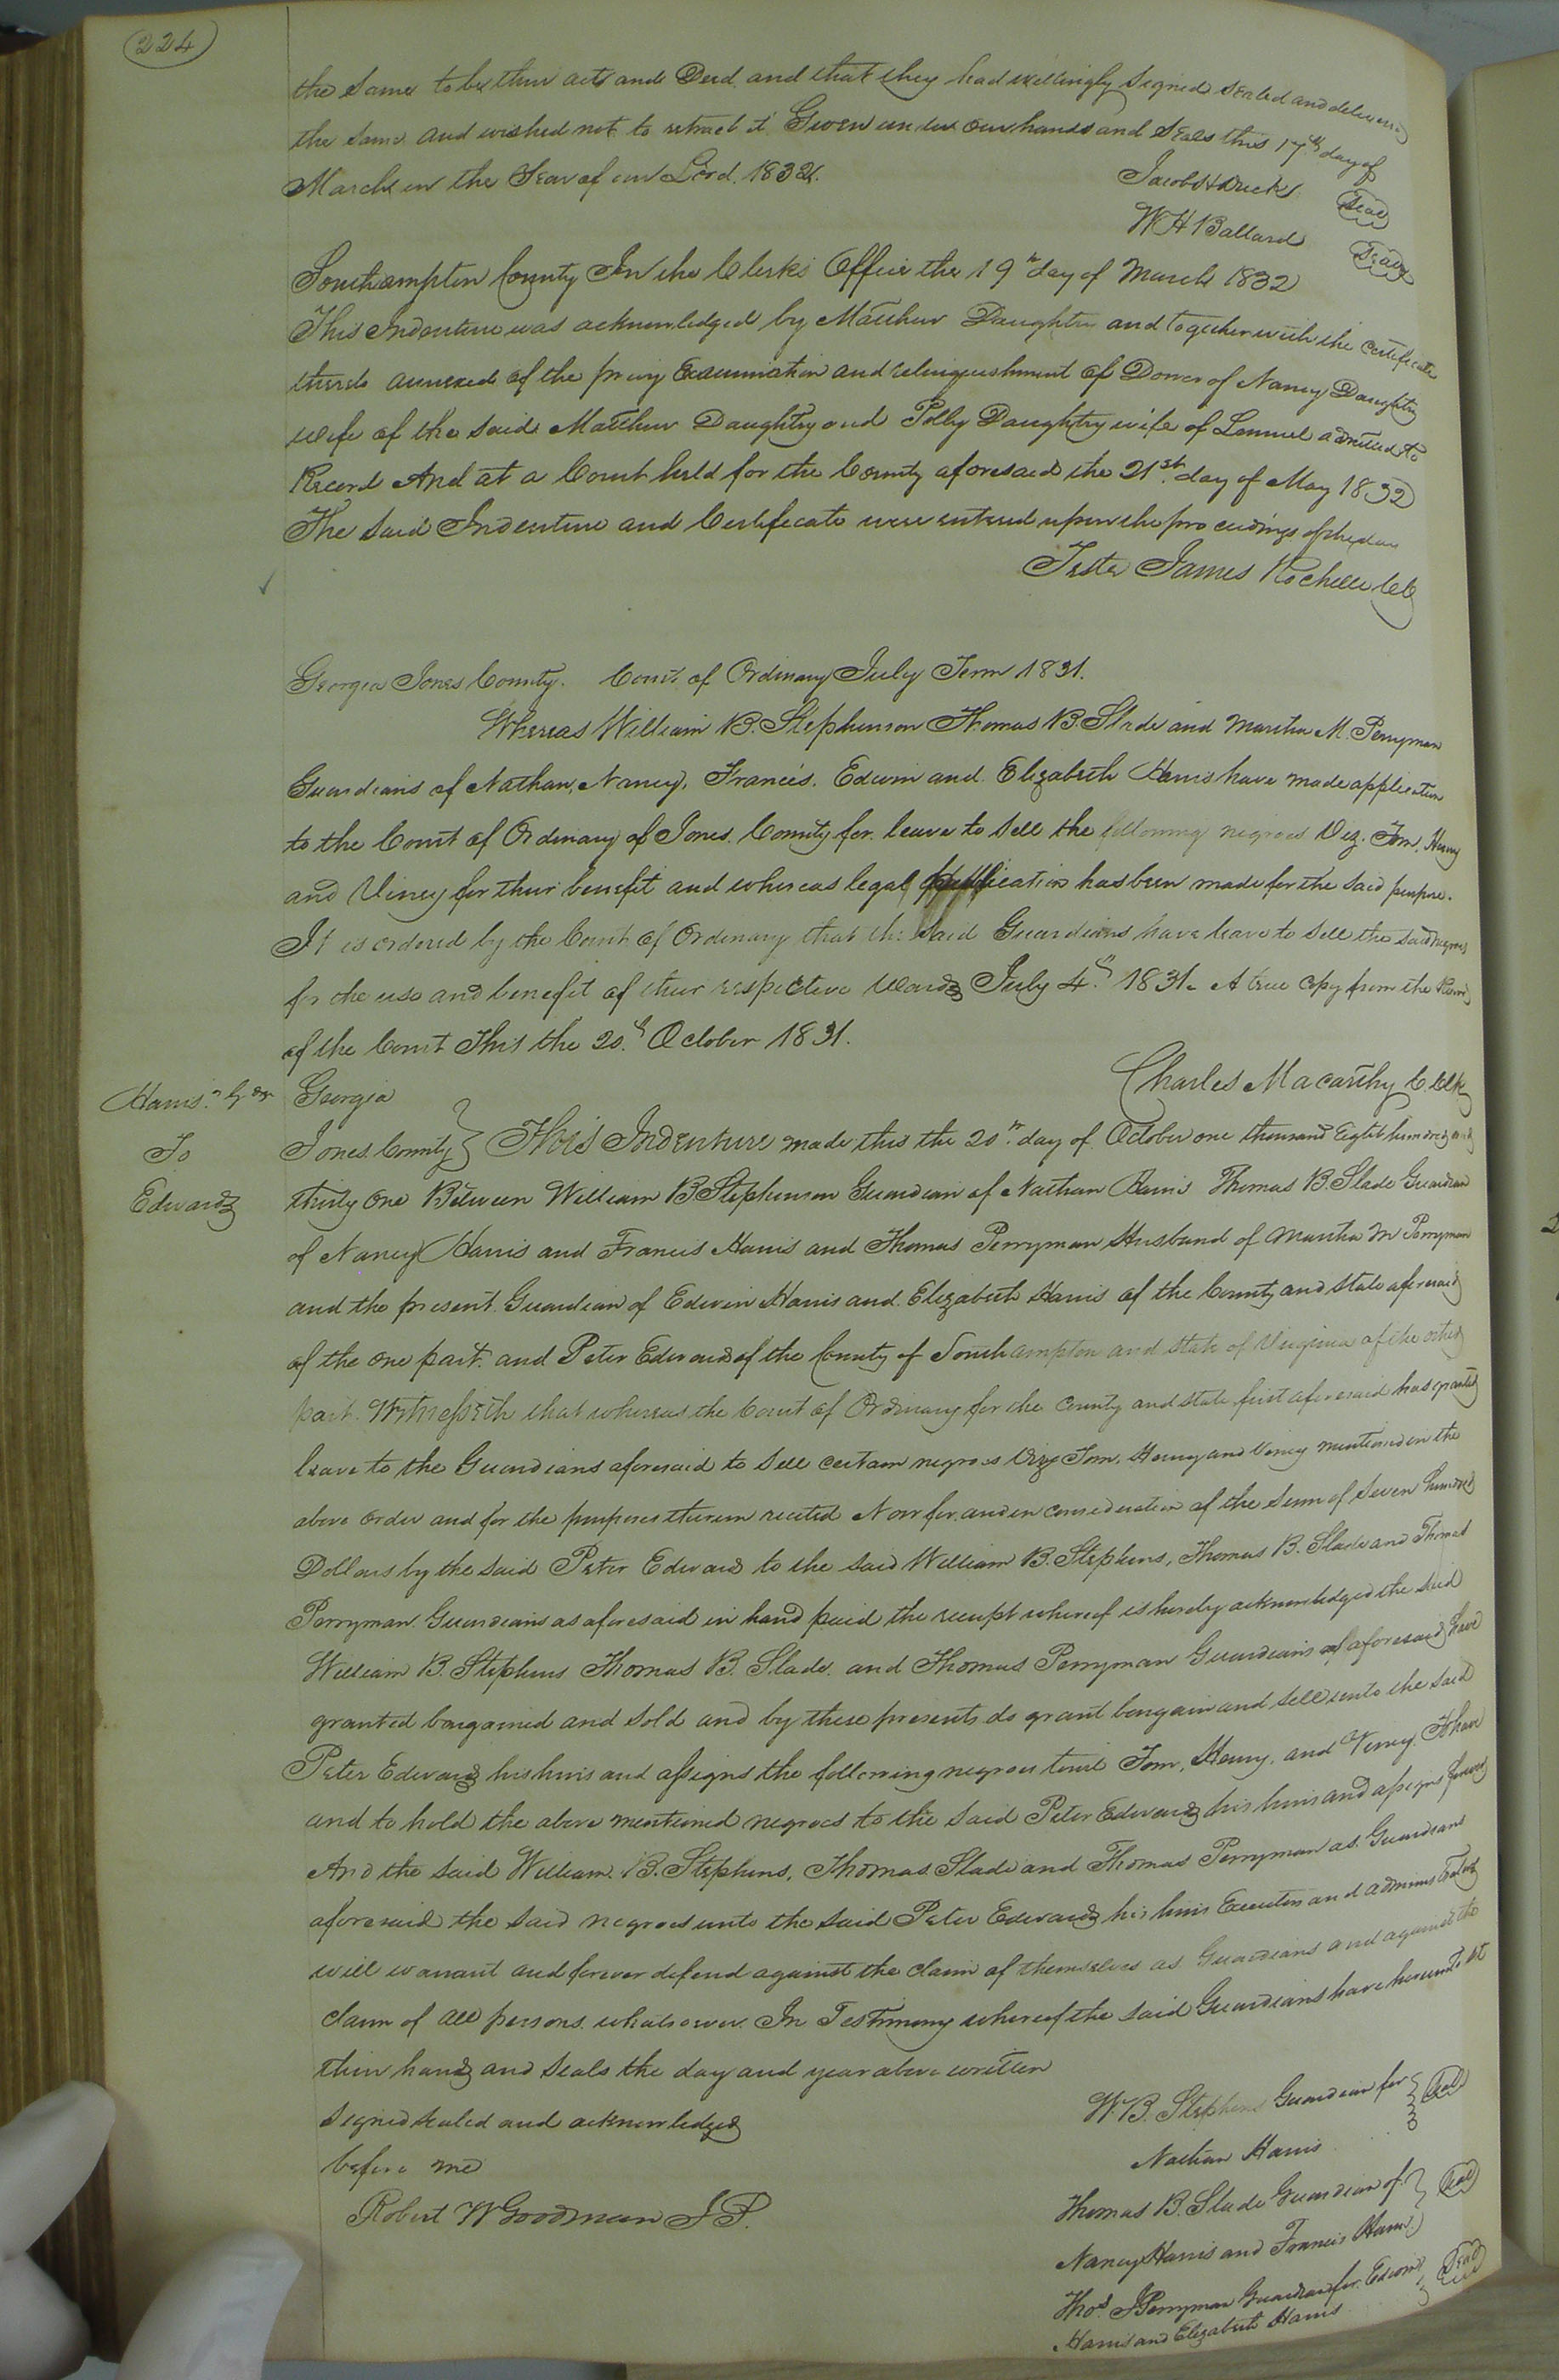 224
the same to be their acts and Deed, and that they had willingly signed sealed and delivered
the same and wished not to retract it Given under our hands and seals this 17th day of
March in the Year of our Lord. 1832.
Jacob Seal
W H Ballard Seal
Southampton County In the Clerks Office the 19th day of March 1832
This Indenture was acknowledged by Matthew Daughtry and together with the certificate
thereto annexed of the privy Examination and relinquishment of Dower of Nancy Daughtry
wife of the said Matthew Daughtry and Polly Daughtry wife of Lemuel admitted to
Record And at a Court held for the County aforesaid the 21st. day of May 1832
The said Indenture and Certificate were entered upon the proceedings of the day
Teste James Rochelle CC
Georgia Jones County. Court of Ordinary July Term 1831.
Whereas William B. Stephenson Thomas B. Slade and Martha M. Perryman
Guardians of Nathan, Nancy, Francis. Edwin and Elizabeth Harris have made application
to the Court of Ordinary of Jones County for leave to sell the following negroes Viz. Tom, Henry
and Viney for their benefit and whereas legal publication has been made for the said purpose.
It is ordered by the Court of Ordinary that the said Guardians have leave to sell the said negroes
for the use and benefit of their respective wards July 4th 1831. A true copy from the
of the Court This the 20th October 1831.
Charles Macarthy C. Clk
Harris Gdn
To
Edwards
Georgia
Jones County } This Indenture made this the 20th day of October one thousand Eight hundred and
thirty one Between William B Stephenson Guardian of Nathan Harris Thomas B. Slade Guardian
of Nancy Harris and Francis Harris and Thomas Perryman Husband of Martha M Perryman
and the present Guardian of Edwin Harris and Elizabeth Harris of the County and State aforesaid
of the one part. and Peter Edwards of the County of Southampton and State of Virginia of the other
part. Witnesseth that whereas the Court of Ordinary for the County and State first aforesaid has granted
leave to the Guardians aforesaid to sell certain negroes Viz Tom, Henry and Viney mentioned in the
above order and for the purposes therein recited Now for and in consideration of the sum of Seven hundred
Dollars by the said Peter Edwards to the said William B. Stephens, Thomas B. Slade and Thomas
Perryman Guardians as aforesaid in hand paid the receipt whereof is hereby acknowledged the said
William B. Stephens Thomas B. Slade. and Thomas Perryman Guardians as aforesaid have
granted bargained and sold and by these presents do grant bargain and sell unto the said
Peter Edwards his heirs and assigns the following negroes towit Tom, Henry, and Viney To have
and to hold the above mentioned negroes to the said Peter Edwards his heirs and assigns forever
And the said William. B. Stephens, Thomas Slade and Thomas Perryman as Guardians
aforesaid the said negroes unto the said Peter Edwards his heirs Executors and administrators
will warrant and forever defend against the claim of themselves as Guardians and against the
claim of all persons whatsoever. In Testimony whereof the said Guardians have hereunto set
their hands and seals the day and year above written
Signed sealed and acknowledged
before me
Robert W Goodman J. P.
W. B. Stephens Guardian for } Seal
Nathan Harris
Thomas B. Slade Guardian of } Seal
Nancy Harris and Francis Harris
Thos. J Perryman Guardian for Edwin } Seal
Harris and Elizabeth Harris